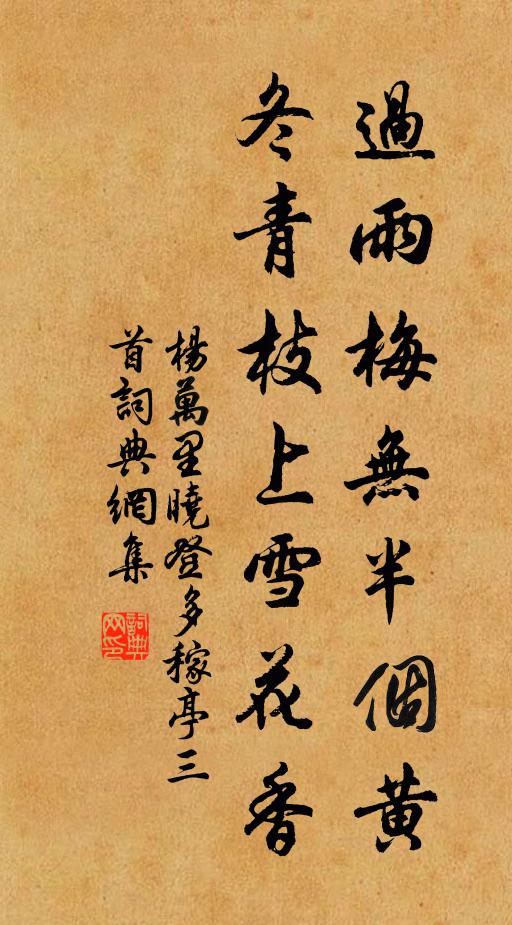 過雨梅無半個黃
冬青枝上雪花香
楊萬里曉登多稼亭三
首詞典網集
詞典
网印